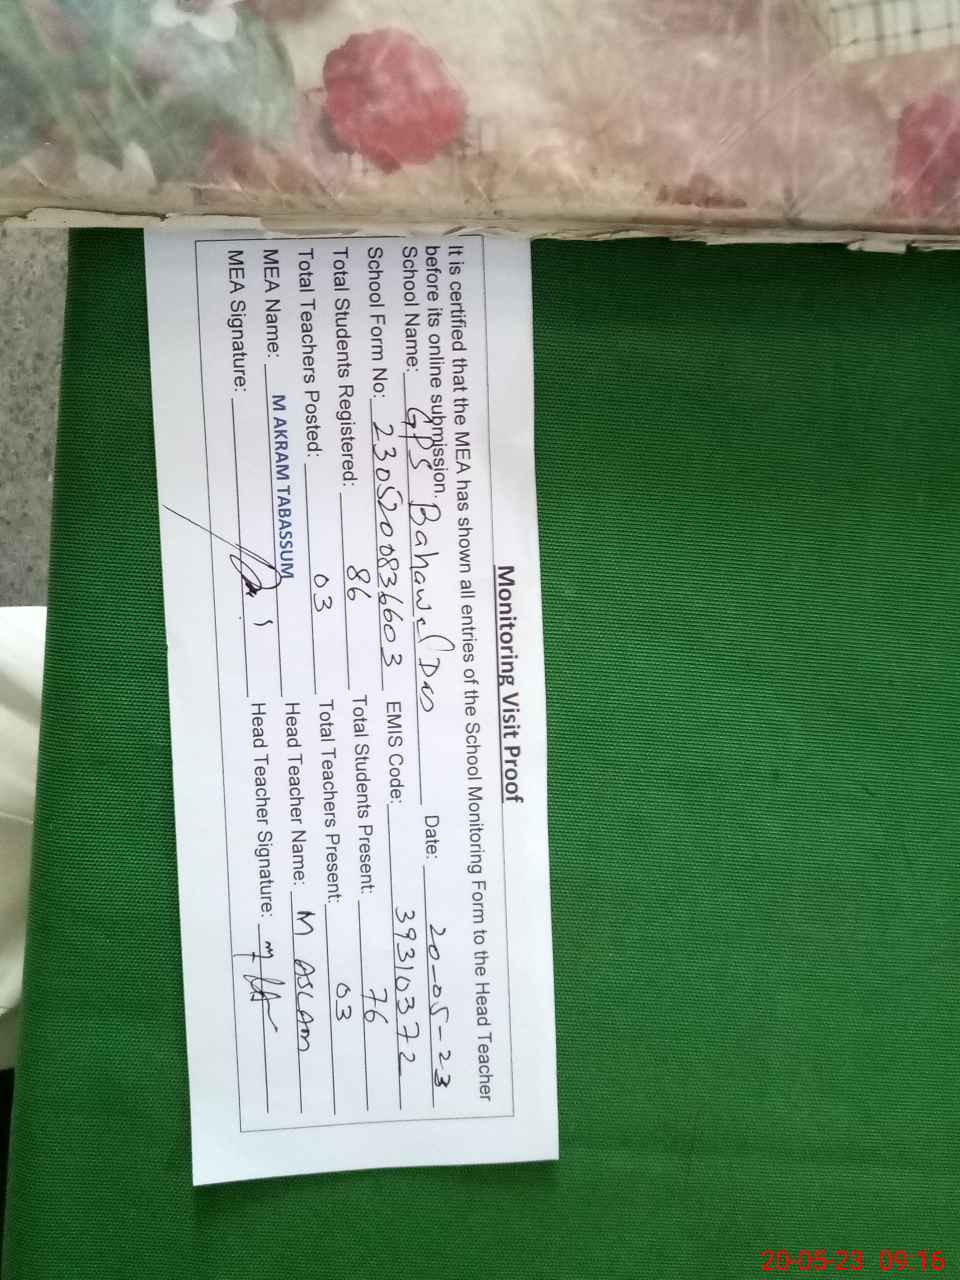 Monitoring Visit Proof
It is certified that the MEA has shown all entries of the School Monitoring Form to the Head Teacher
before its online submission.
School Name: GPS Bahawal Das Date: 20-05-23
School Form No: 2305200836603 EMIS Code: 39310372
Total Students Registered: 86 Total Students Present: 76
Total Teachers Posted: 03 Total Teachers Present: 03
MEA Name: M AKRAM TABASSUM Head Teacher Name: M ASLAM
MEA Signature: Head Teacher Signature:
20-05-23 09:16